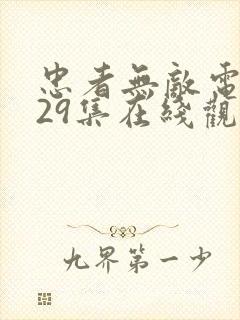 忠者無敵電
29集在綫觀
九界第一少